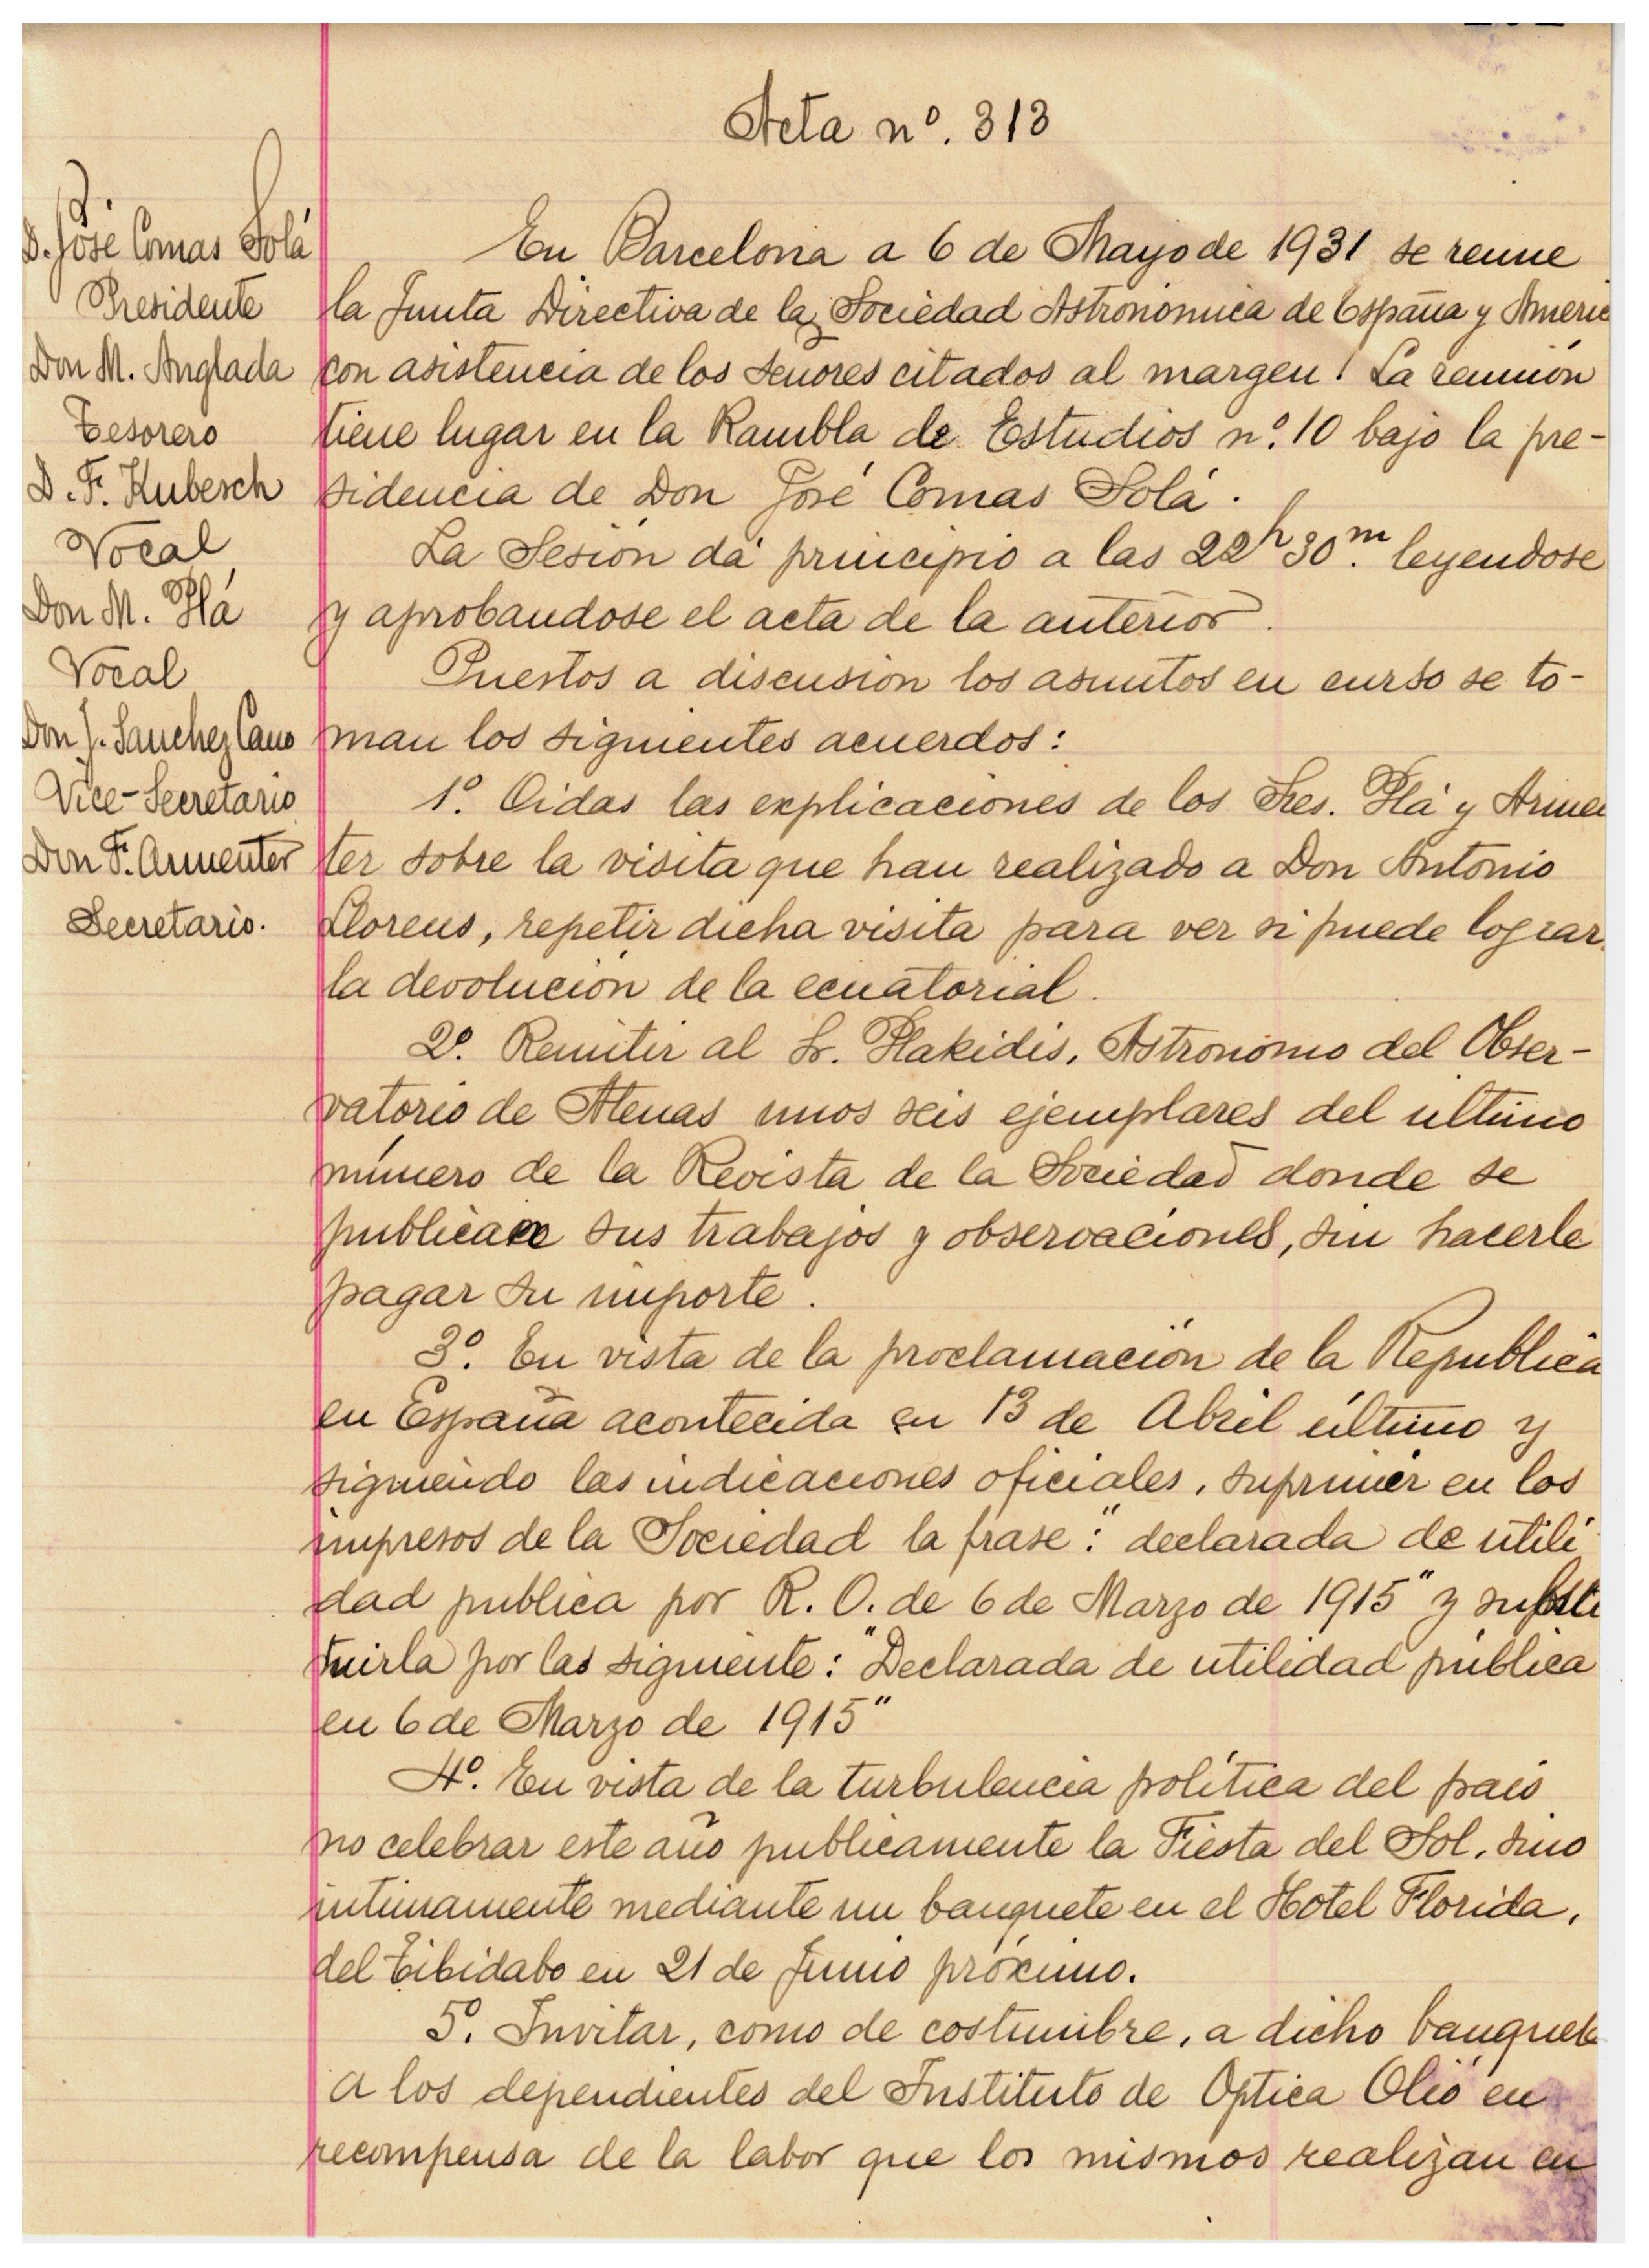 Acta nº. 313
D. José Comas Solá
Presidente
Don M. Anglada
Tesorero
D. F. Kubesch
Vocal
Don M. Plá
Vocal
Don J. Sanchez Cano
Vice-Secretario
Don F. Armenter
Secretario.
En Barcelona a 6 de Mayo de 1931 se reune
la Junta Directiva de la Sociedad Astronómica de España y Americ
con asistencia de los señores citados al margen. La reunión
tiene lugar en la Rambla de Estudios nº. 10 bajo la pre-
sidencia de Don José Comas Solá.
La Sesión dá principio a las 22h 30m. leyendose
y aprobandose el acta de la anterior.
Puestos a discusión los asuntos en curso se to-
man los siguientes acuerdos:
1º. Oidas las explicaciones de los Sres. Plá y Armen
ter sobre la visita que han realizado a Don Antonio
Llorens, repetir dicha visita para ver si puede lograr
la devolución de la ecuatorial.
2º. Remitir al Sr. Plakidis, Astrónomo del Obser-
vatorio de Atenas unos seis ejemplares del ultimo
número de la Revista de la Sociedad donde se
publican sus trabajos y observaciones, sin hacerle
pagar su importe.
3º. En vista de la proclamación de la Republica
en España acontecida en 13 de Abril último y
siguiendo las indicaciones oficiales, suprimir en los
impresos de la Sociedad la frase: "declarada de utili
dad publica por R. O. de 6 de Marzo de 1915" y substi
tuirla por las siguiente: "Declarada de utilidad pública
en 6 de Marzo de 1915"
4º. En vista de la turbulencia política del pais
no celebrar este año publicamente la Fiesta del Sol, sino
intimamente mediante un banquete en el Hotel Florida,
del Tibidabo en 21 de Junio próximo.
5º. Invitar, como de costumbre, a dicho banquete
a los dependientes del Instituto de Optica Olió en
recompensa de la labor que los mismos realizan en